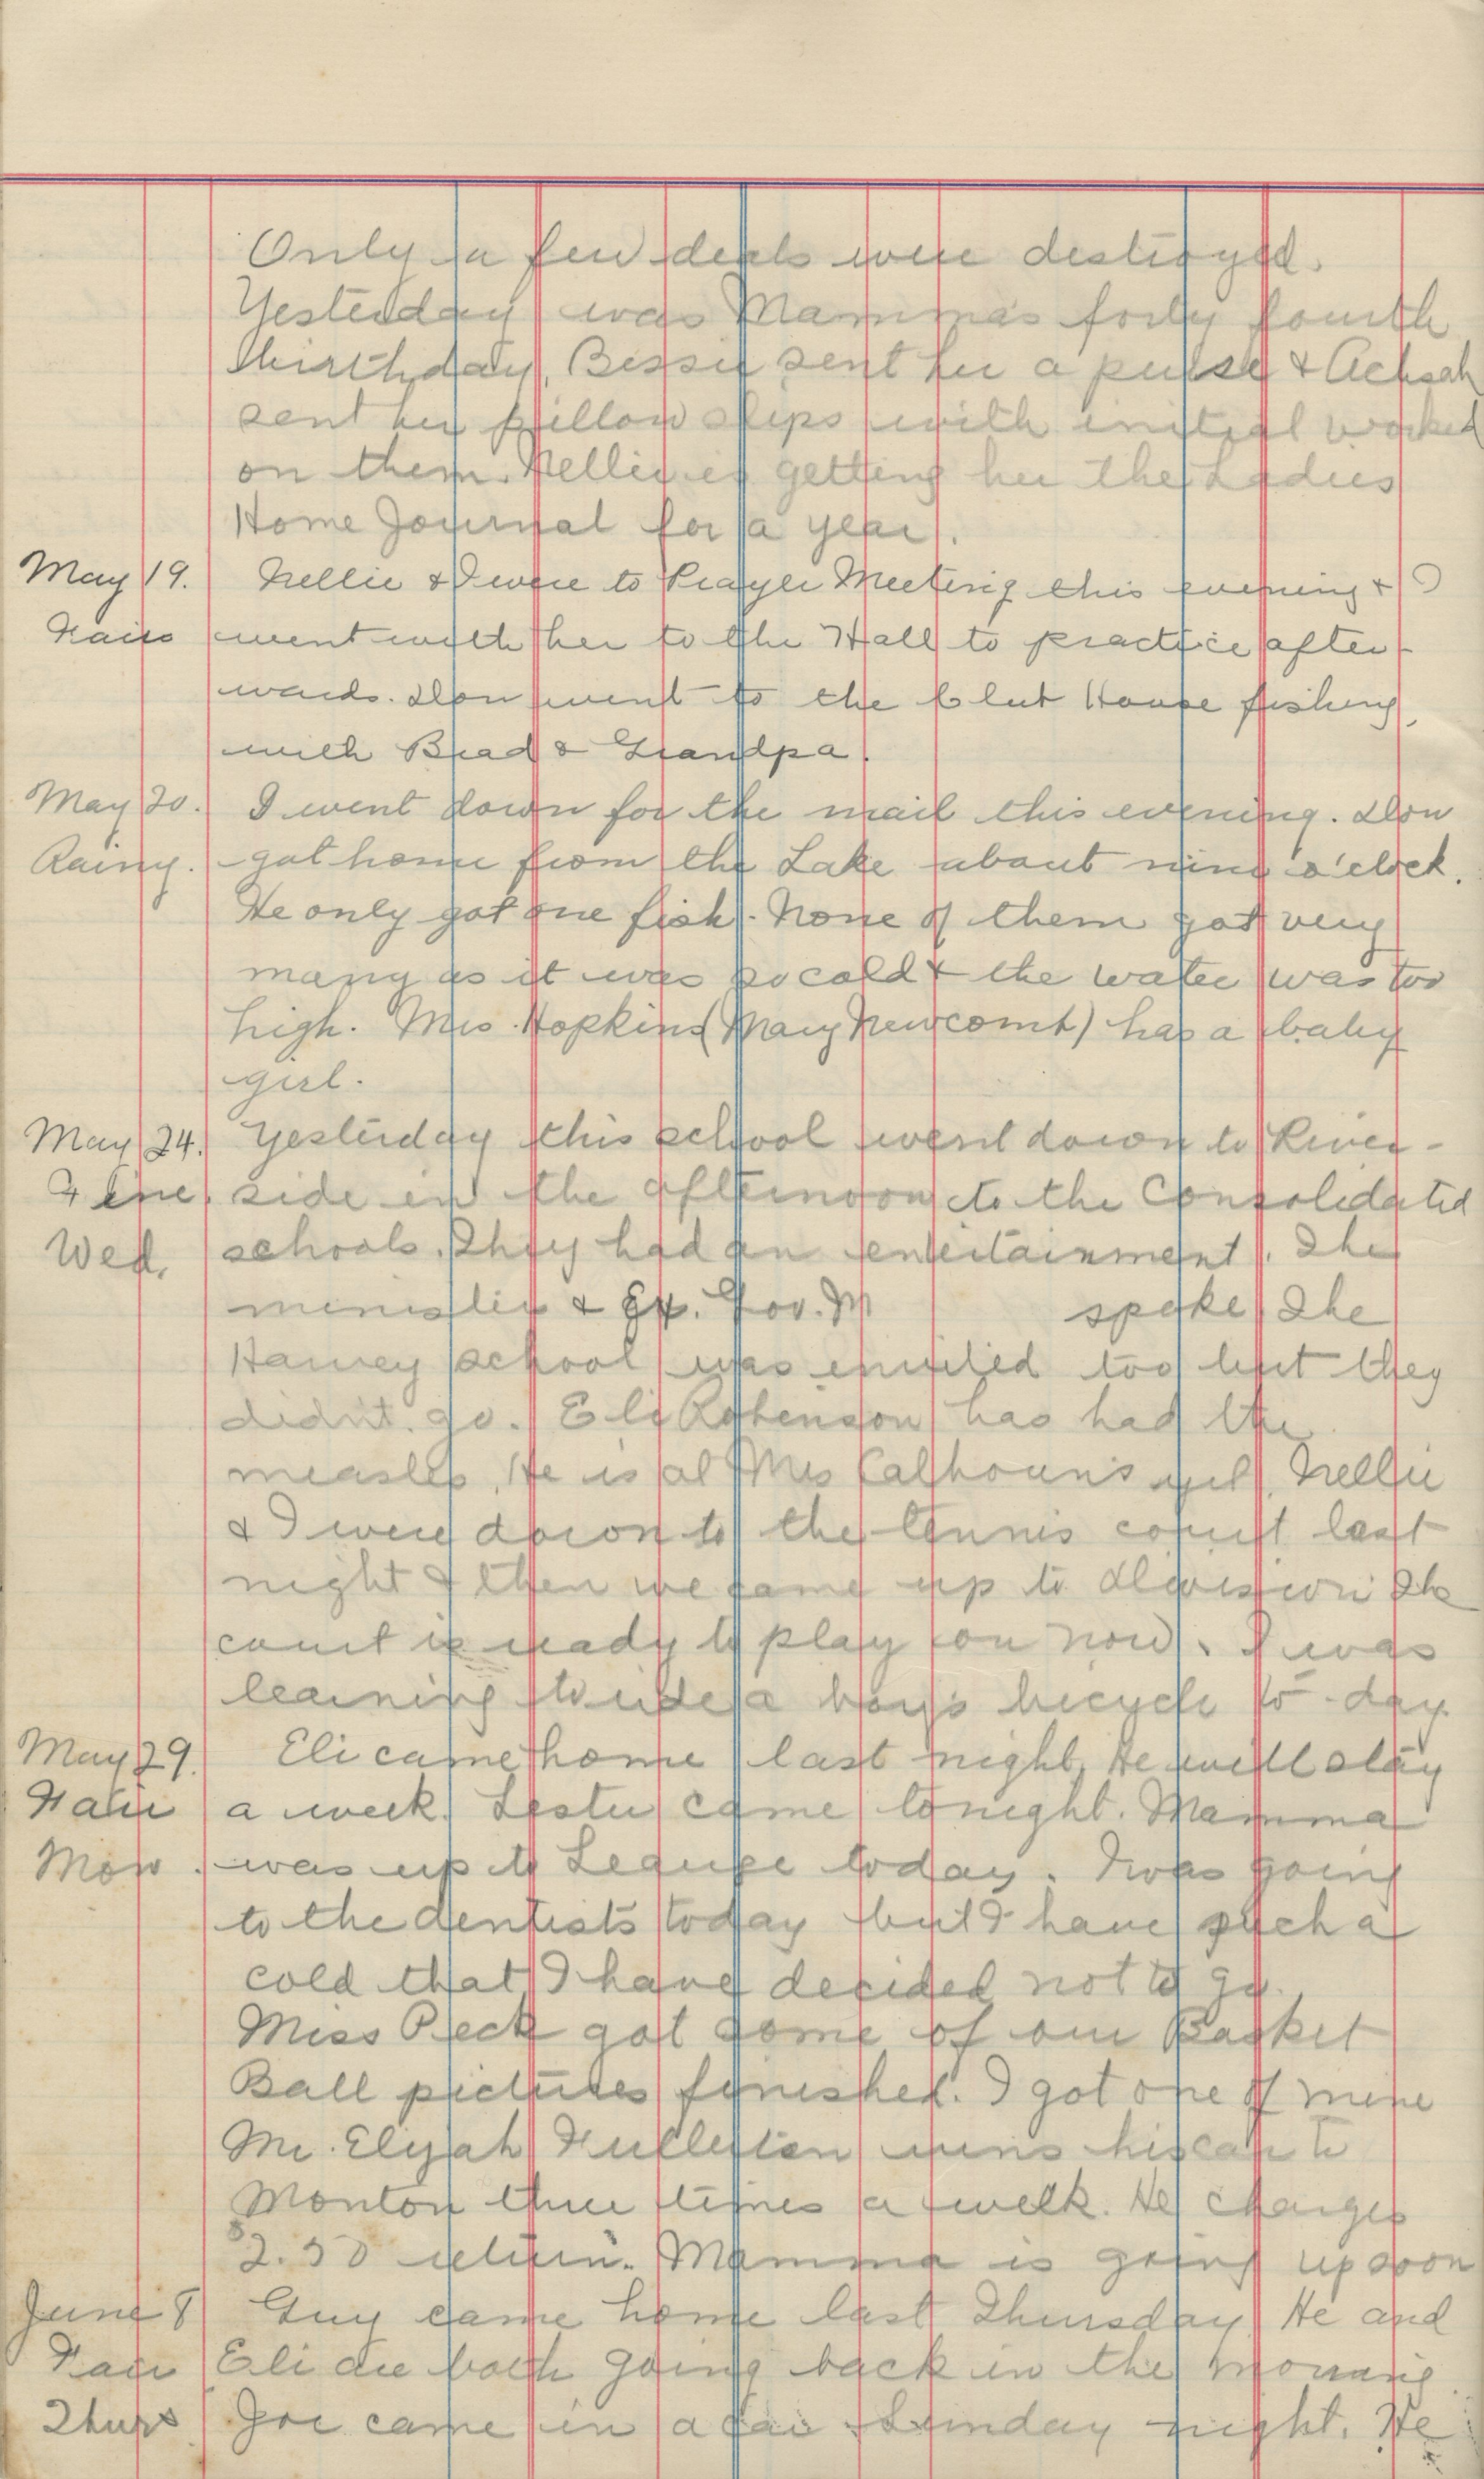 Only a few deals were destroyed.
Yesterday was Mamma's forty fourth
birthday. Bessie sent her a purse & Achsah
sent her pillow slips with initial worked
on them. Nellie is getting her the Ladies
Home Journal for a year.
May 19. Nellie & I were to Prayer Meeting this evening & I
Fair went with her to the Hall to practice after-
wards. Don went to the Club House fishing,
with Brad & Grandpa.
May 20. I went down for the mail this evening. Don
Rainy. got home from the Lake about nine o'clock.
He only got one fish. None of them got very
many as it was so cold & the water was too
high. Mrs. Hopkins (Mary Newcomb) has a baby
girl.
May 24. Yesterday this school went down to River-
Fine. side in the afternoon to the Consolidated
Wed. schools. They had an entertainment. The
minister & Ex. Gov. M spoke. The
Harvey school was invited too but they
didn't go. Eli Robinson has had the
measles. He is at Mrs Calhoun's yet. Nellie
& I were down to the tennis court last
night & then we came up to Division. The
court is ready to play on now. I was
learning to ride a boy's bicycle to-day.
May 29. Eli came home last night. He will stay
Fair a week. Lester came tonight. Mamma
Mon. was up to today. I was going
to the dentists today but I have such a
cold that I have decided not to go.
Miss Peck got some of our Basket
Ball pictures finished. I got one of mine
Mr. Elijah Fullerton runs his car to
Monton three times a week. He charges
$2.50 return. Mamma is going up soon
June 8 Guy came home last Thursday. He and
Fair Eli are both going back in the morning.
Thurs Joe came in a car Sunday night. He